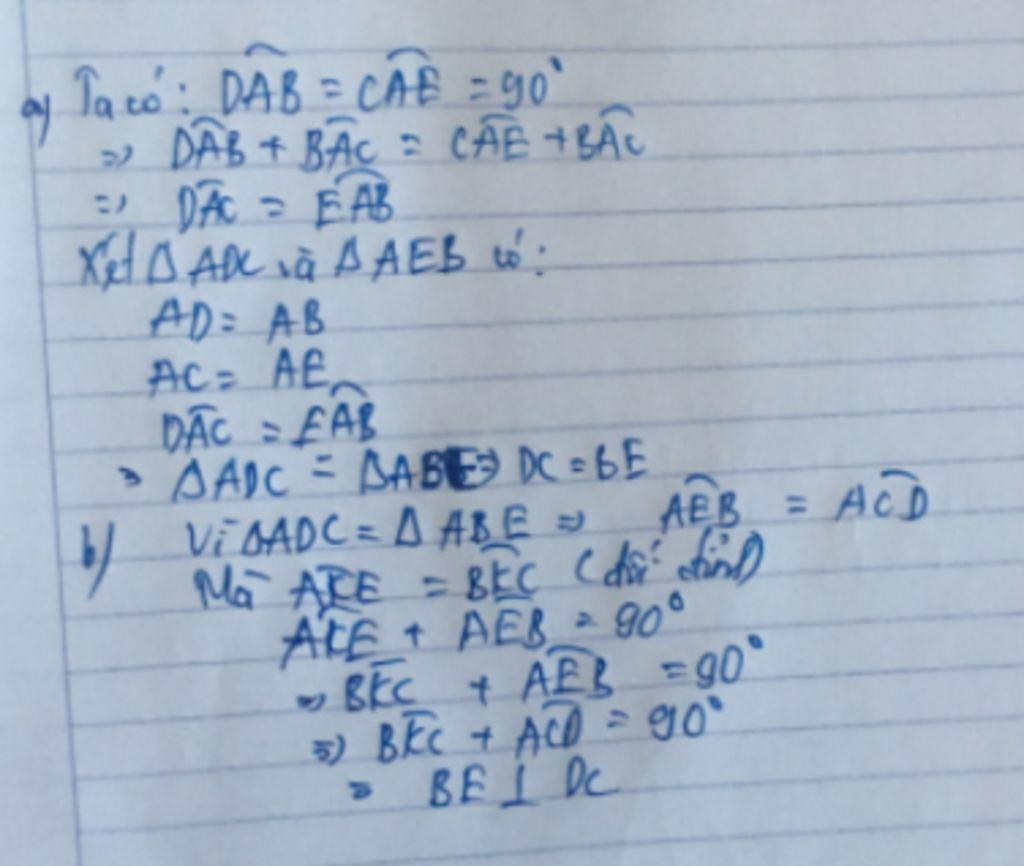 a) Ta có: DAB = CAE = 90°
=> DAB + BAC = CAE + BAC
=> DAC = EAB
Xét Δ ADC và Δ AEB có:
AD = AB
AC = AE
DAC = EAB
=> ΔADC = ΔABE => DC = BE
b) Vì ΔADC = Δ ABE => AEB = ACD
Mà AKE = BKC (đối đỉnh)
AKE + AEB = 90°
=> BKC + AEB = 90°
=> BKC + ACD = 90°
=> BE ⊥ DC